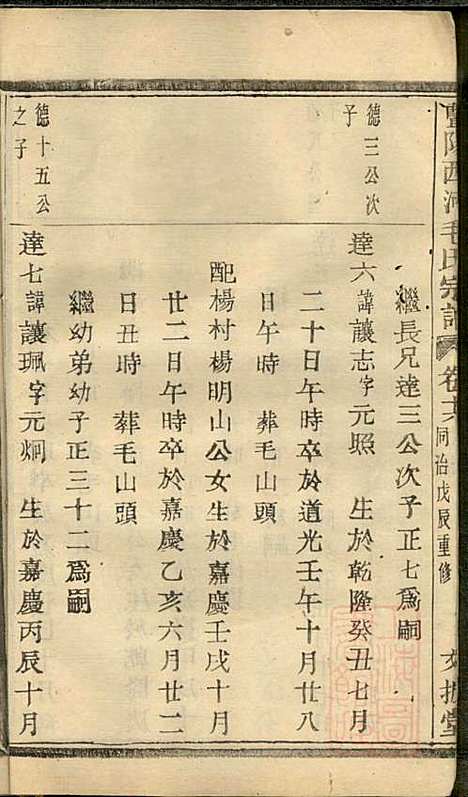 暨陽西河毛氏宗譜 卷十六 同治戊辰重修
繼長兄達三公次子正七爲嗣
德三公次子
達六諱讓志字元照 生於乾隆癸丑七月
二十日午時卒於道光壬午十月廿八
日午時 葬毛山頭
配楊村楊明山公女生於嘉慶壬戌十月
廿二日午時卒於嘉慶乙亥六月廿二
日丑時 葬毛山頭
繼幼弟幼子正三十二爲嗣
德十五公之子
達七諱讓珮字元炯 生於嘉慶丙辰十月